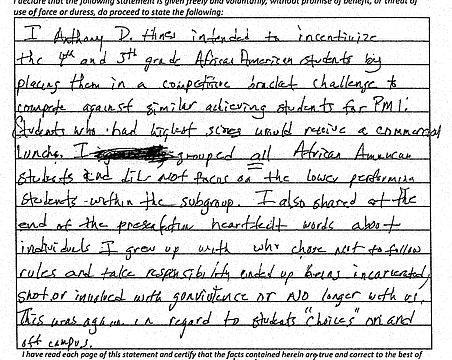 I declare that the following statement is given freely and voluntarily, without promise of benefit, or threat of
use of force or duress, do proceed to state the following:
I Anthony D. Hines intended to incentivize
the 4th and 5th grade African American students by
placing them in a competitive bracket challenge to
compete against similar achieving students for PM1.
Students who had highest scores would receive a commercial
lunch. I grouped all African American
students and did not focus on the lower performing
students within the subgroup. I also shared at the
end of the presentation heartfelt words about
individuals I grew up with who chose not to follow
rules and take responsibility ended up being incarcerated,
shot or involved with gun violence or no longer with us.
This was again in regard to students "choices" on and
off campus.
I have read each page of this statement and certify that the facts contained herein are true and correct to the best of